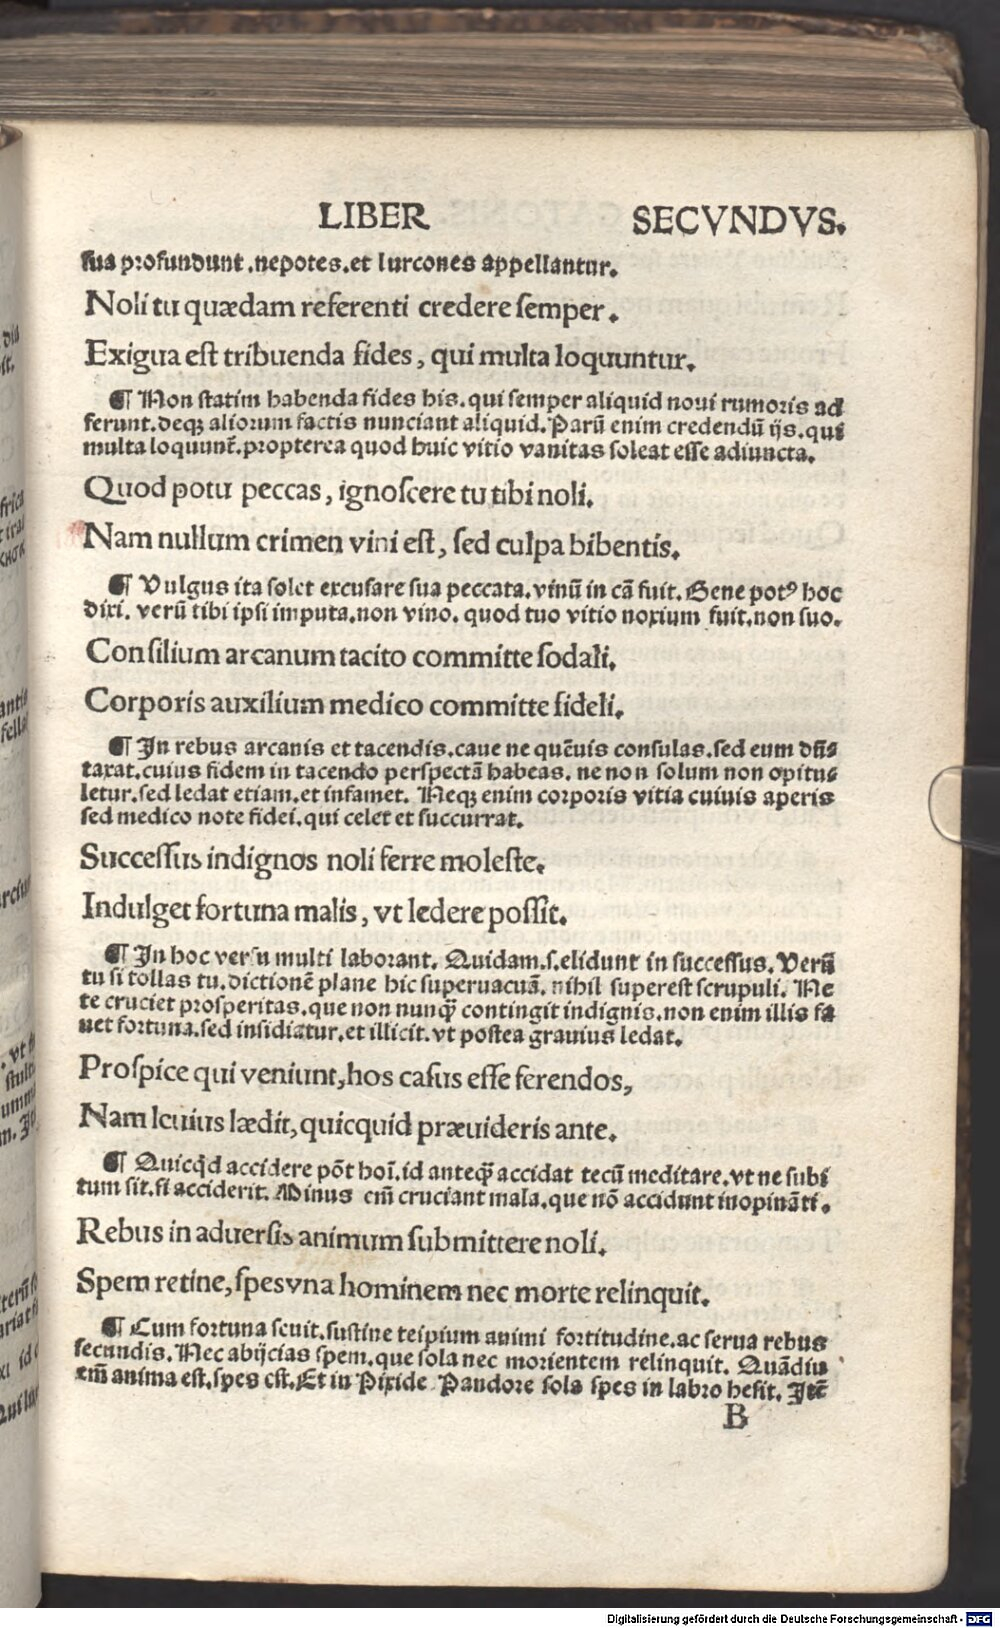 LIBER SECVNDVS.
ſua profundunt.nepotes.et lurcones appellantur.
Noli tu quædam referenti credere ſemper.
Exigua eſt tribuenda fides, qui multa loquuntur.
¶ Non ſtatim habenda fides his. qui ſemper aliquid noui rumoris ad
ferunt.deqꝫ aliorum factis nunciant aliquid.Parū enim credendū ijs.qui
multa loquunt᷑.propterea quod huic vitio vanitas ſoleat eſſe adiuncta.
Quod potu peccas, ignoſcere tu tibi noli.
Nam nullum crimen vini eſt, ſed culpa bibentis.
¶ Vulgus ita ſolet excuſare ſua peccata.vinū in cā fuit. Bene potꝰ hoc
dixi. verū tibi ipſi imputa.non vino. quod tuo vitio noxium fuit.non ſuo.
Conſilium arcanum tacito committe ſodali.
Corporis auxilium medico committe fideli.
¶ In rebus arcanis et tacendis.caue ne quēuis conſulas.ſed eum dūt
taxat.cuius fidem in tacendo perſpectā habeas. ne non ſolum non opitu⸗
letur.ſed ledat etiam.et infamet. Neqꝫ enim corporis vitia cuiuis aperis
ſed medico note fidei.qui celet et ſuccurrat.
Succeſſus indignos noli ferre moleſte.
Indulget fortuna malis, vt ledere poſſit.
¶ In hoc verſu multi laborant. Quidam.s.elidunt in ſucceſſus. Verū
tu ſi tollas tu.dictionē plane hic ſuperuacuā. nihil ſupereſt ſcrupuli. Ne
te cruciet proſperitas.que non nunq̄ contingit indignis.non enim illis fa
uet fortuna.ſed inſidiatur.et illicit.vt poſtea grauius ledat.
Proſpice qui veniunt,hos caſus eſſe ferendos,
Nam lcuius lædit, quicquid præuideris ante.
¶ Quicq̇d accidere pōt hoī.id anteq̄ accidat tecū meditare.vt ne ſubi
tum ſit.ſi acciderit. Minus em̄ cruciant mala.que nō accidunt inopināti.
Rebus in aduerſis animum ſubmittere noli.
Spem retine, ſpes vna hominem nec morte relinquit.
¶ Cum fortuna ſeuit.ſuſtine teipſum animi fortitudine.ac ſerua rebus
ſecundis. Nec abijcias ſpem.que ſola nec morientem relinquit. Quādiu
em̄ anima eſt.ſpes eſt.Et in Pixide Pandore ſola ſpes in labro heſit. Itē
B
Digitalisierung gefördert durch die Deutsche Forschungsgemeinschaft - DFG